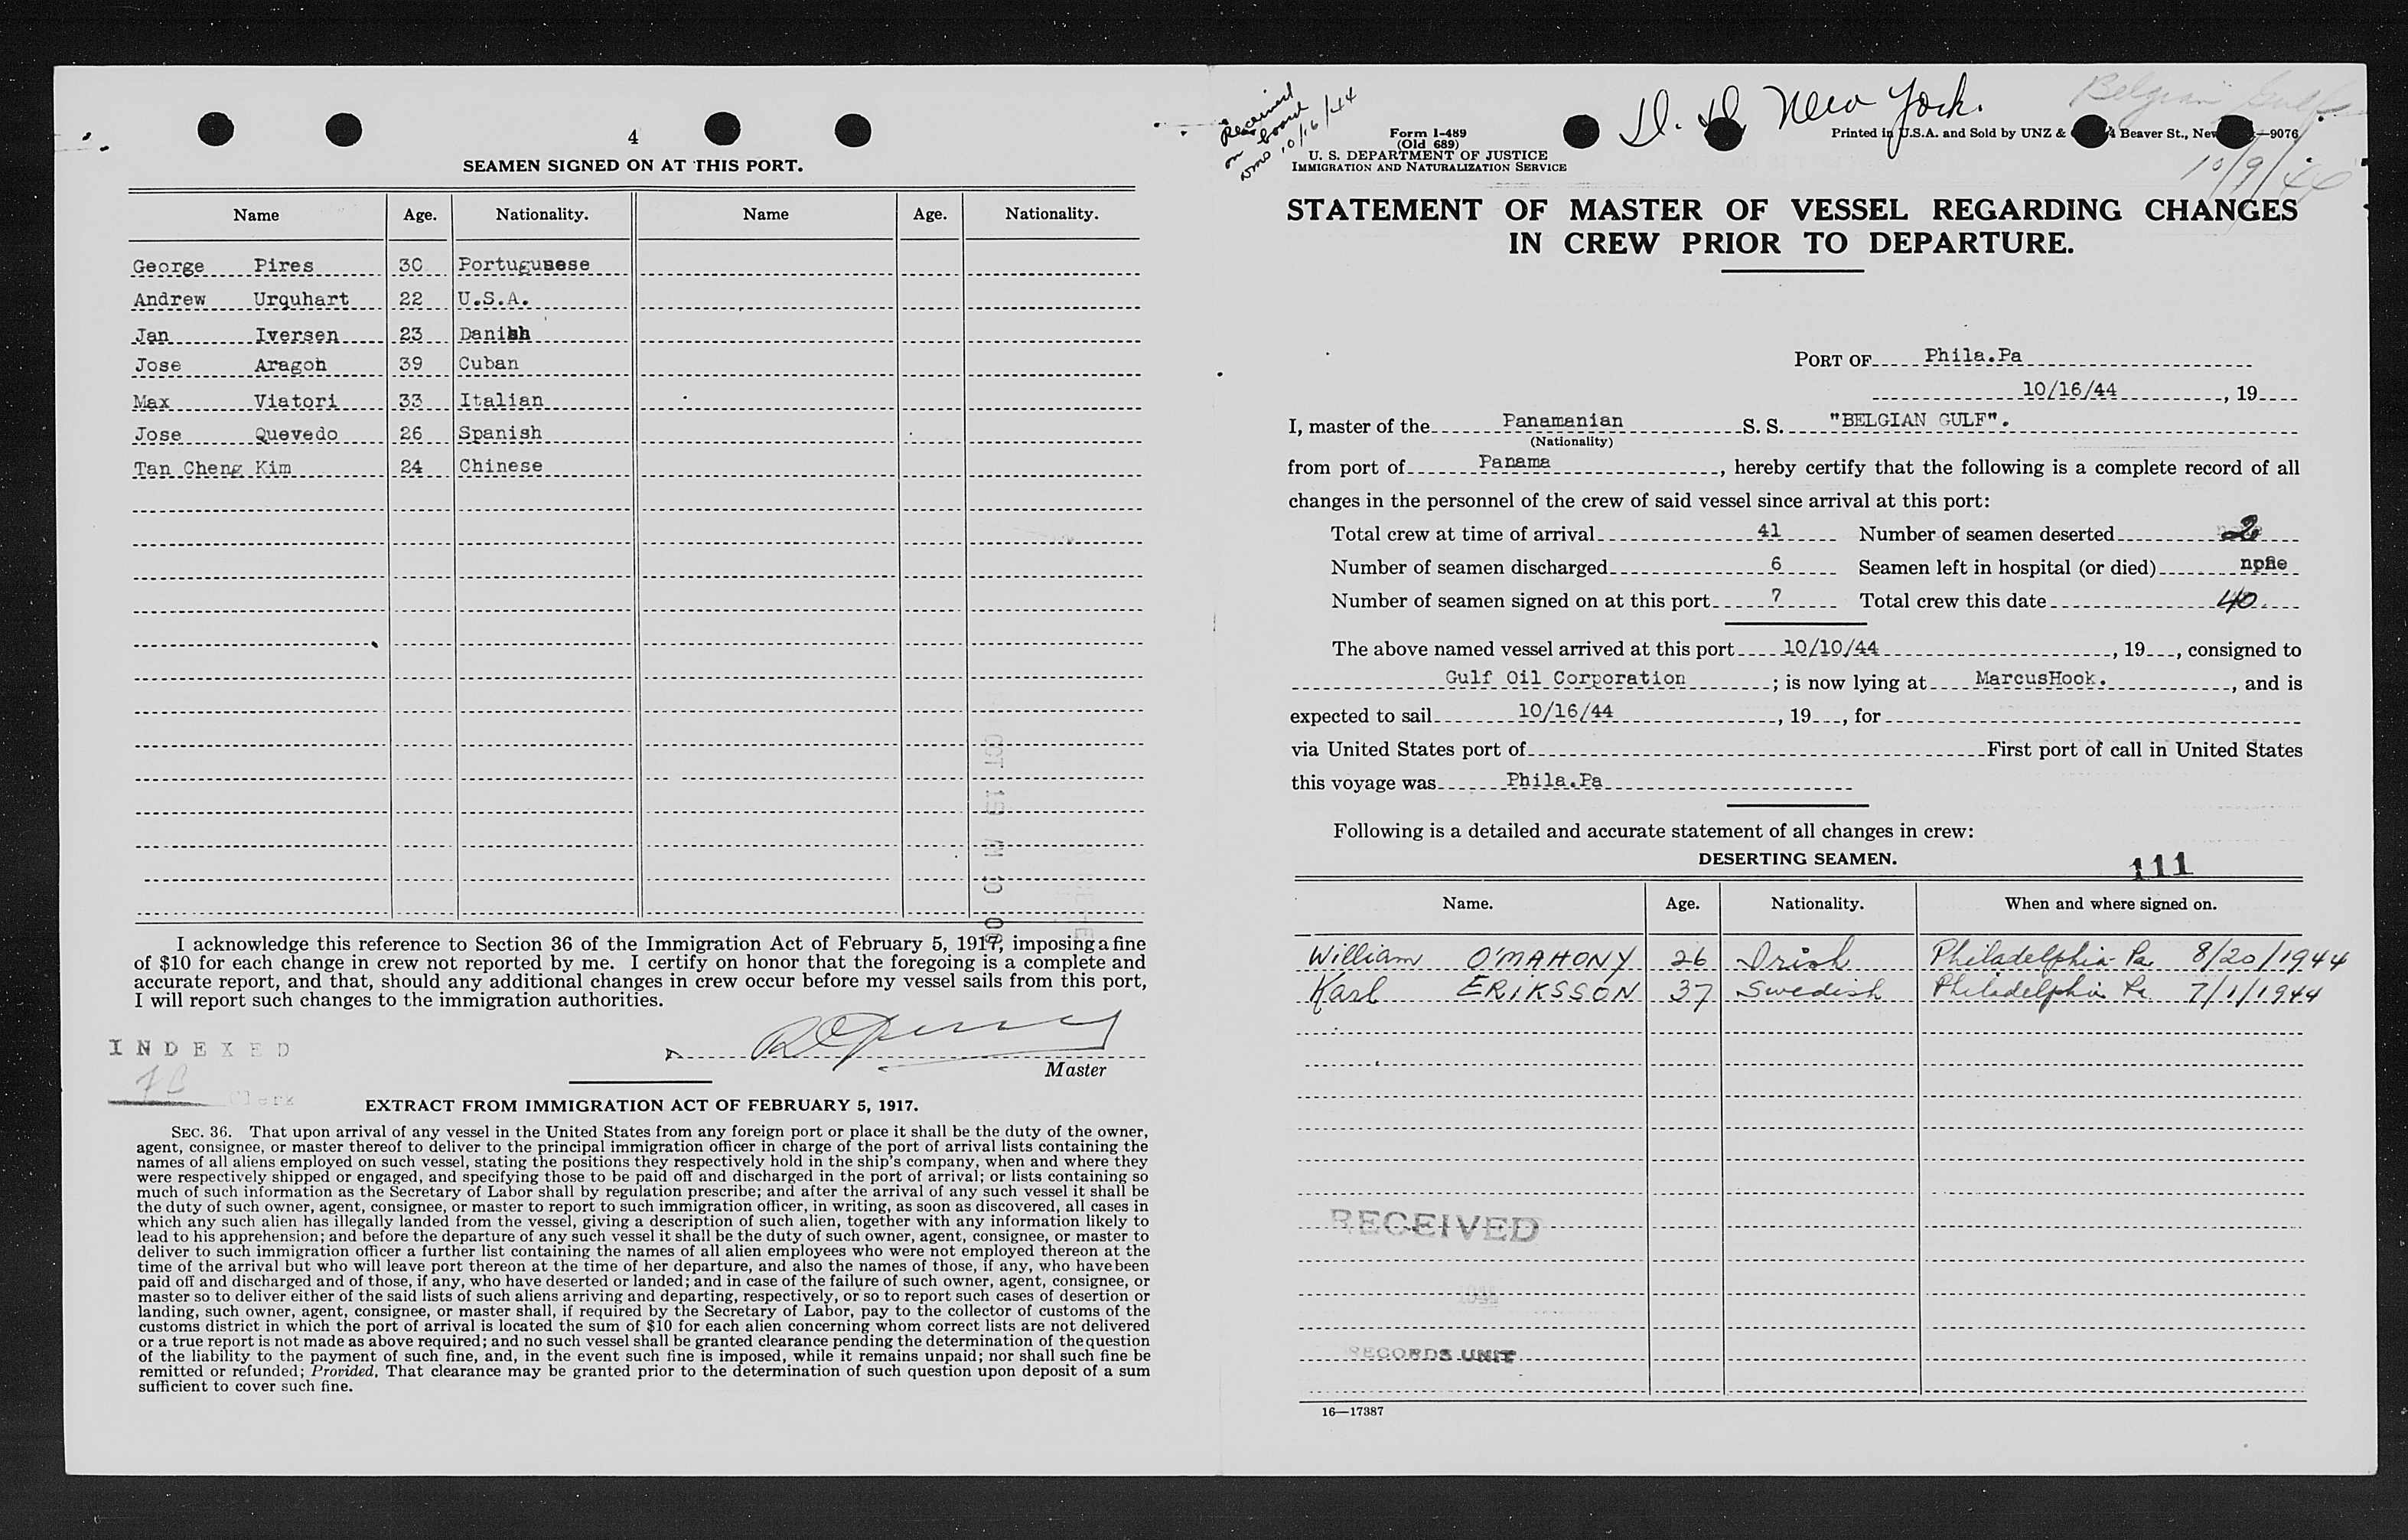 4
SEAMEN SIGNED ON AT THIS PORT.
Name Age. Nationality. Name Age. Nationality.
George Pires 30 Portuguese
Andrew Urquhart 22 U.S.A.
Jan Iversen 23 Danish
Jose Aragon 39 Cuban
Max Viatori 33 Italian
Jose Quevedo 26 Spanish
Tan Cheng Kim 24 Chinese
I acknowledge this reference to Section 36 of the Immigration Act of February 5, 1917, imposing a fine
of $10 for each change in crew not reported by me. I certify on honor that the foregoing is a complete and
accurate report, and that, should any additional changes in crew occur before my vessel sails from this port,
I will report such changes to the immigration authorities.
INDEXED
Clerk
Master
EXTRACT FROM IMMIGRATION ACT OF FEBRUARY 5, 1917.
SEC. 36. That upon arrival of any vessel in the United States from any foreign port or place it shall be the duty of the owner,
agent, consignee, or master thereof to deliver to the principal immigration officer in charge of the port of arrival lists containing the
names of all aliens employed on such vessel, stating the positions they respectively hold in the ship's company, when and where they
were respectively shipped or engaged, and specifying those to be paid off and discharged in the port of arrival; or lists containing so
much of such information as the Secretary of Labor shall by regulation prescribe; and after the arrival of any such vessel it shall be
the duty of such owner, agent, consignee, or master to report to such immigration officer, in writing, as soon as discovered, all cases in
which any such alien has illegally landed from the vessel, giving a description of such alien, together with any information likely to
lead to his apprehension; and before the departure of any such vessel it shall be the duty of such owner, agent, consignee, or master to
deliver to such immigration officer a further list containing the names of all alien employees who were not employed thereon at the
time of the arrival but who will leave port thereon at the time of her departure, and also the names of those, if any, who have been
paid off and discharged and of those, if any, who have deserted or landed; and in case of the failure of such owner, agent, consignee, or
master so to deliver either of the said lists of such aliens arriving and departing, respectively, or so to report such cases of desertion or
landing, such owner, agent, consignee, or master shall, if required by the Secretary of Labor, pay to the collector of customs of the
customs district in which the port of arrival is located the sum of $10 for each alien concerning whom correct lists are not delivered
or a true report is not made as above required; and no such vessel shall be granted clearance pending the determination of the question
of the liability to the payment of such fine, and, in the event such fine is imposed, while it remains unpaid; nor shall such fine be
remitted or refunded; Provided, That clearance may be granted prior to the determination of such question upon deposit of a sum
sufficient to cover such fine.
Received
on board
10/16/44
New York.
Belgian Gulf
10/9/44
Form I-489
(Old 689)
U. S. DEPARTMENT OF JUSTICE
IMMIGRATION AND NATURALIZATION SERVICE
Printed in U.S.A. and Sold by UNZ & Beaver St., New —9076
STATEMENT OF MASTER OF VESSEL REGARDING CHANGES
IN CREW PRIOR TO DEPARTURE.
PORT OF Phila.Pa
10/16/44, 19
I, master of the Panamanian S. S. "BELGIAN GULF".
(Nationality)
from port of Panama, hereby certify that the following is a complete record of all
changes in the personnel of the crew of said vessel since arrival at this port:
Total crew at time of arrival 41 Number of seamen deserted 2
Number of seamen discharged 6 Seamen left in hospital (or died) none
Number of seamen signed on at this port 7 Total crew this date 40
The above named vessel arrived at this port 10/10/44, 19, consigned to
Gulf Oil Corporation; is now lying at MarcusHook., and is
expected to sail 10/16/44, 19, for
via United States port of First port of call in United States
this voyage was Phila.Pa
Following is a detailed and accurate statement of all changes in crew:
DESERTING SEAMEN.
111
Name. Age. Nationality. When and where signed on.
William O'MAHONY 26 Irish Philadelphia Pa. 8/20/1944
Karl ERIKSSON 37 Swedish Philadelphia Pa. 7/1/1944
RECEIVED
1944
RECORDS UNIT
16—17387